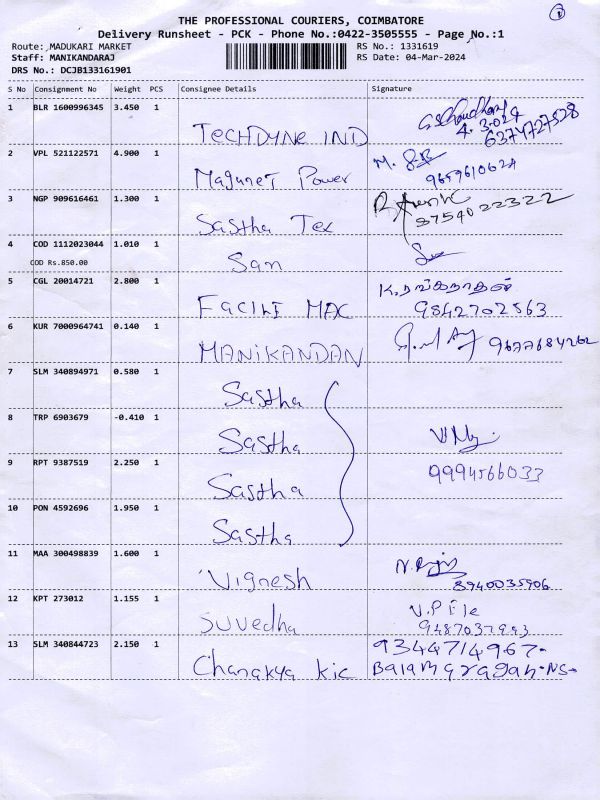 THE PROFESSIONAL COURIERS, COIMBATORE
Delivery Runsheet - PCK - Phone No.:0422-3505555 - Page No.:1
Route: MADUKARI MARKET
Staff: MANIKANDARAJ
DRS No.: DCJB133161901
RS No.: 1331619
RS Date: 04-Mar-2024
S No Consignment No Weight PCS Consignee Details Signature
1 BLR 1600996345 3.450 1 TECHDYNE IND 6374727528
2 VPL 521122571 4.900 1 Magunet Power M. 9659610624
3 NGP 909616461 1.300 1 Sastha Tex 9754022322
4 COD 1112023044 1.010 1 San
COD Rs.850.00
5 CGL 20014721 2.800 1 FACIKI MAC K.ரங்கநாதன் 9842702563
6 KUR 7000964741 0.140 1 MANIKANDAN 9677684262
7 SLM 340894971 0.580 1 Sastha
8 TRP 6903679 -0.410 1 Sastha
9 RPT 9387519 2.250 1 Sastha 9994566033
10 PON 4592696 1.950 1 Sastha
11 MAA 300498839 1.600 1 Vignesh 8940035906
12 KPT 273012 1.155 1 Suvedha
13 SLM 340844723 2.150 1 Chanakya kic 9344714967-